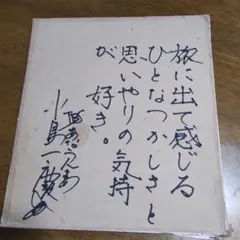 旅に出て感じる
ひとなつかしさと
思いやりの気持
が
好き。
小島一慶